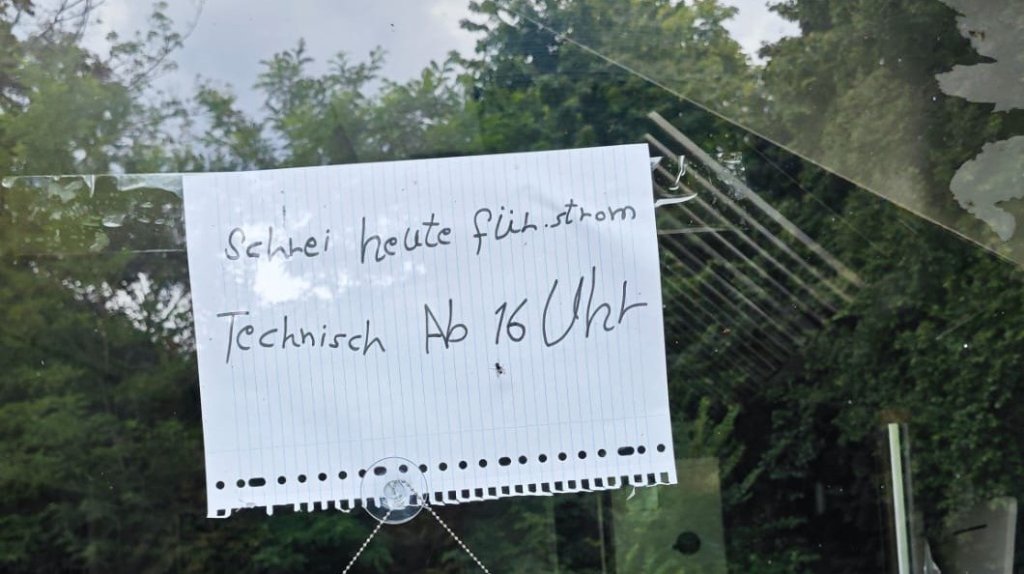 Schrei heute für.strom
Technisch Ab 16 Uhr